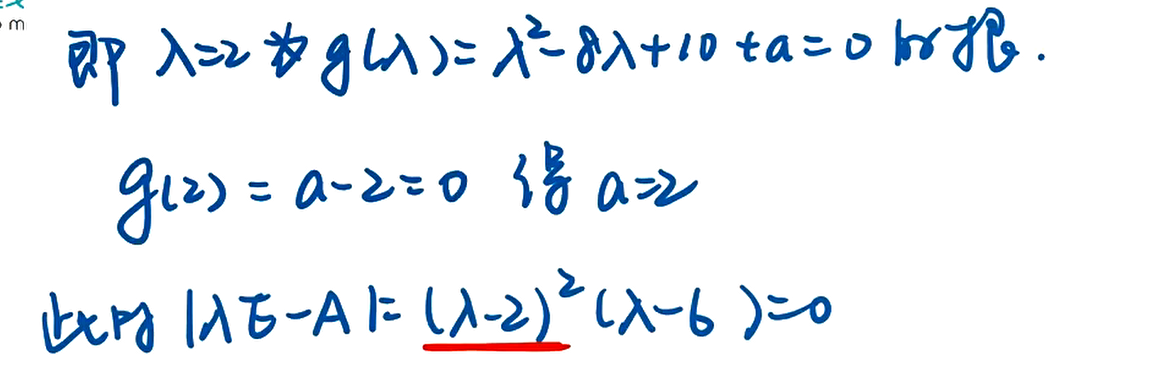 m
即 λ=2 为 g(λ)=λ²-8λ+10+a=0 的根.
g(2)=a-2=0 得 a=2
此时 |λE-A|=(λ-2)²(λ-6)=0